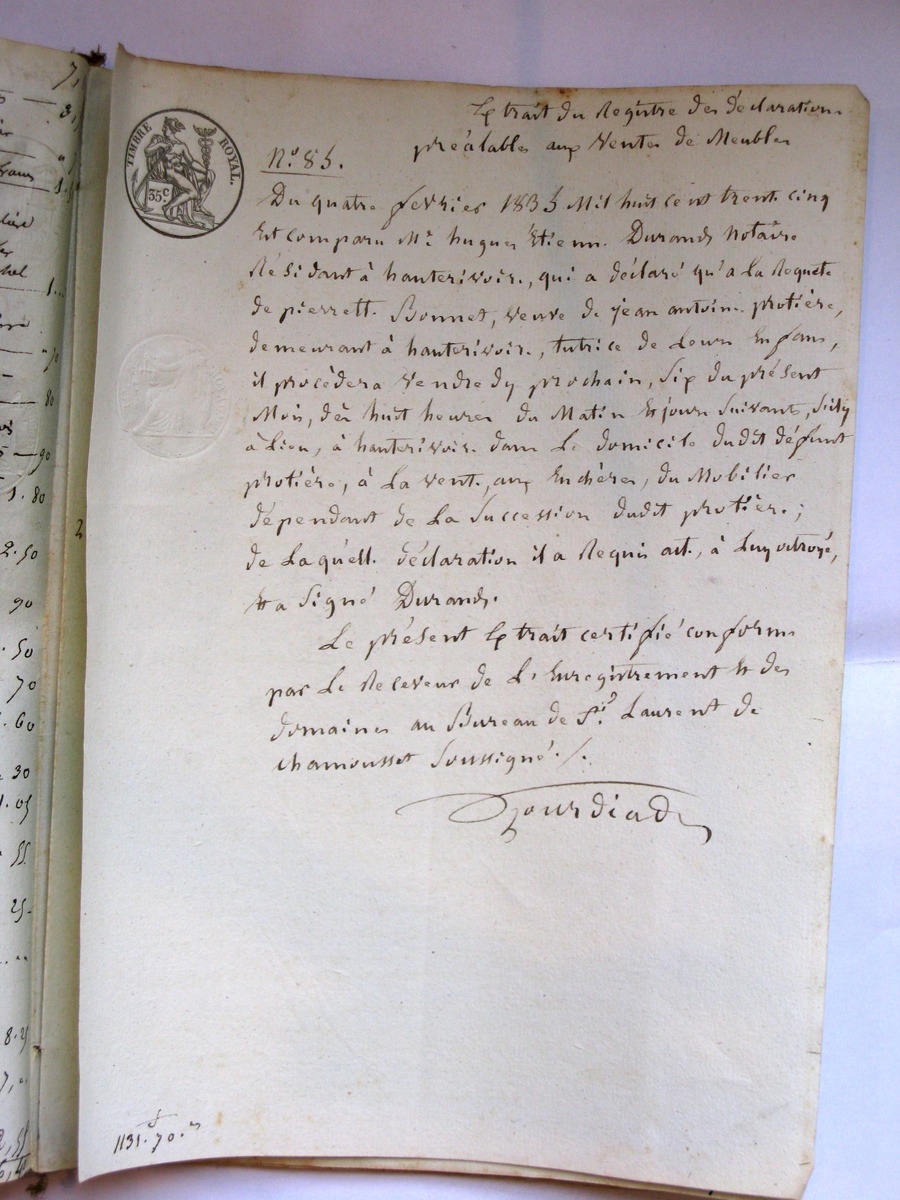 Extrait du Registre des déclarations
préalables aux Ventes de Meubles
TIMBRE ROYAL.
35 c
N.o 85.
Du quatre fevrier 1835 Mil huit cent trente cinq
Est comparu M.e hugues Etienne Durand Notaire
Résidant à hauterivoire, qui a déclaré qu'a la Requete
de pierrette Bonnet, veuve de jean antoine protière,
demeurant à hauterivoire, tutrice de Leurs Enfans,
il procèdera Vendredy prochain, Six du présent
Mois, dès huit heures du Matin et jours Suivants, S'il y
à Lieu, à hauterivoire dans Le domicile dudit défunt
protière, à La vente, aux Enchères, du Mobilier
dépendant de La Succession dudit protière;
de Laquelle déclaration il a Requis acte, à Luy octroyé,
et a Signé Durand.
Le présent Extrait certifié conforme
par Le Receveur de L'Enregistrement et des
domaines au Bureau de St. Laurent de
chamousset Soussigné./.
1131.f 70.c
7,
3,
1.
1.
80
90
1.80
2
2.50
90
.50
70
.60
30
1.05
55
25.
8.25
7,"